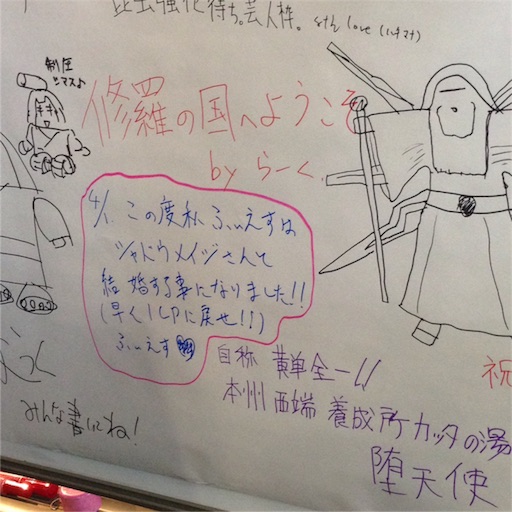 昆虫強化待ち。芸人枠。 with love (ハオマナ)
制圧
シマス♪
修羅の国へようこそ
by らーく。
4/1. この度私ふぃえすは
シャドウメイジさんと
結婚する事になりました!!
(早く1LPに戻せ!!)
ふぃえす
自称 黄単全一
本州西端 養成所カッタの湯
堕天使
祝
みんな書いてね!